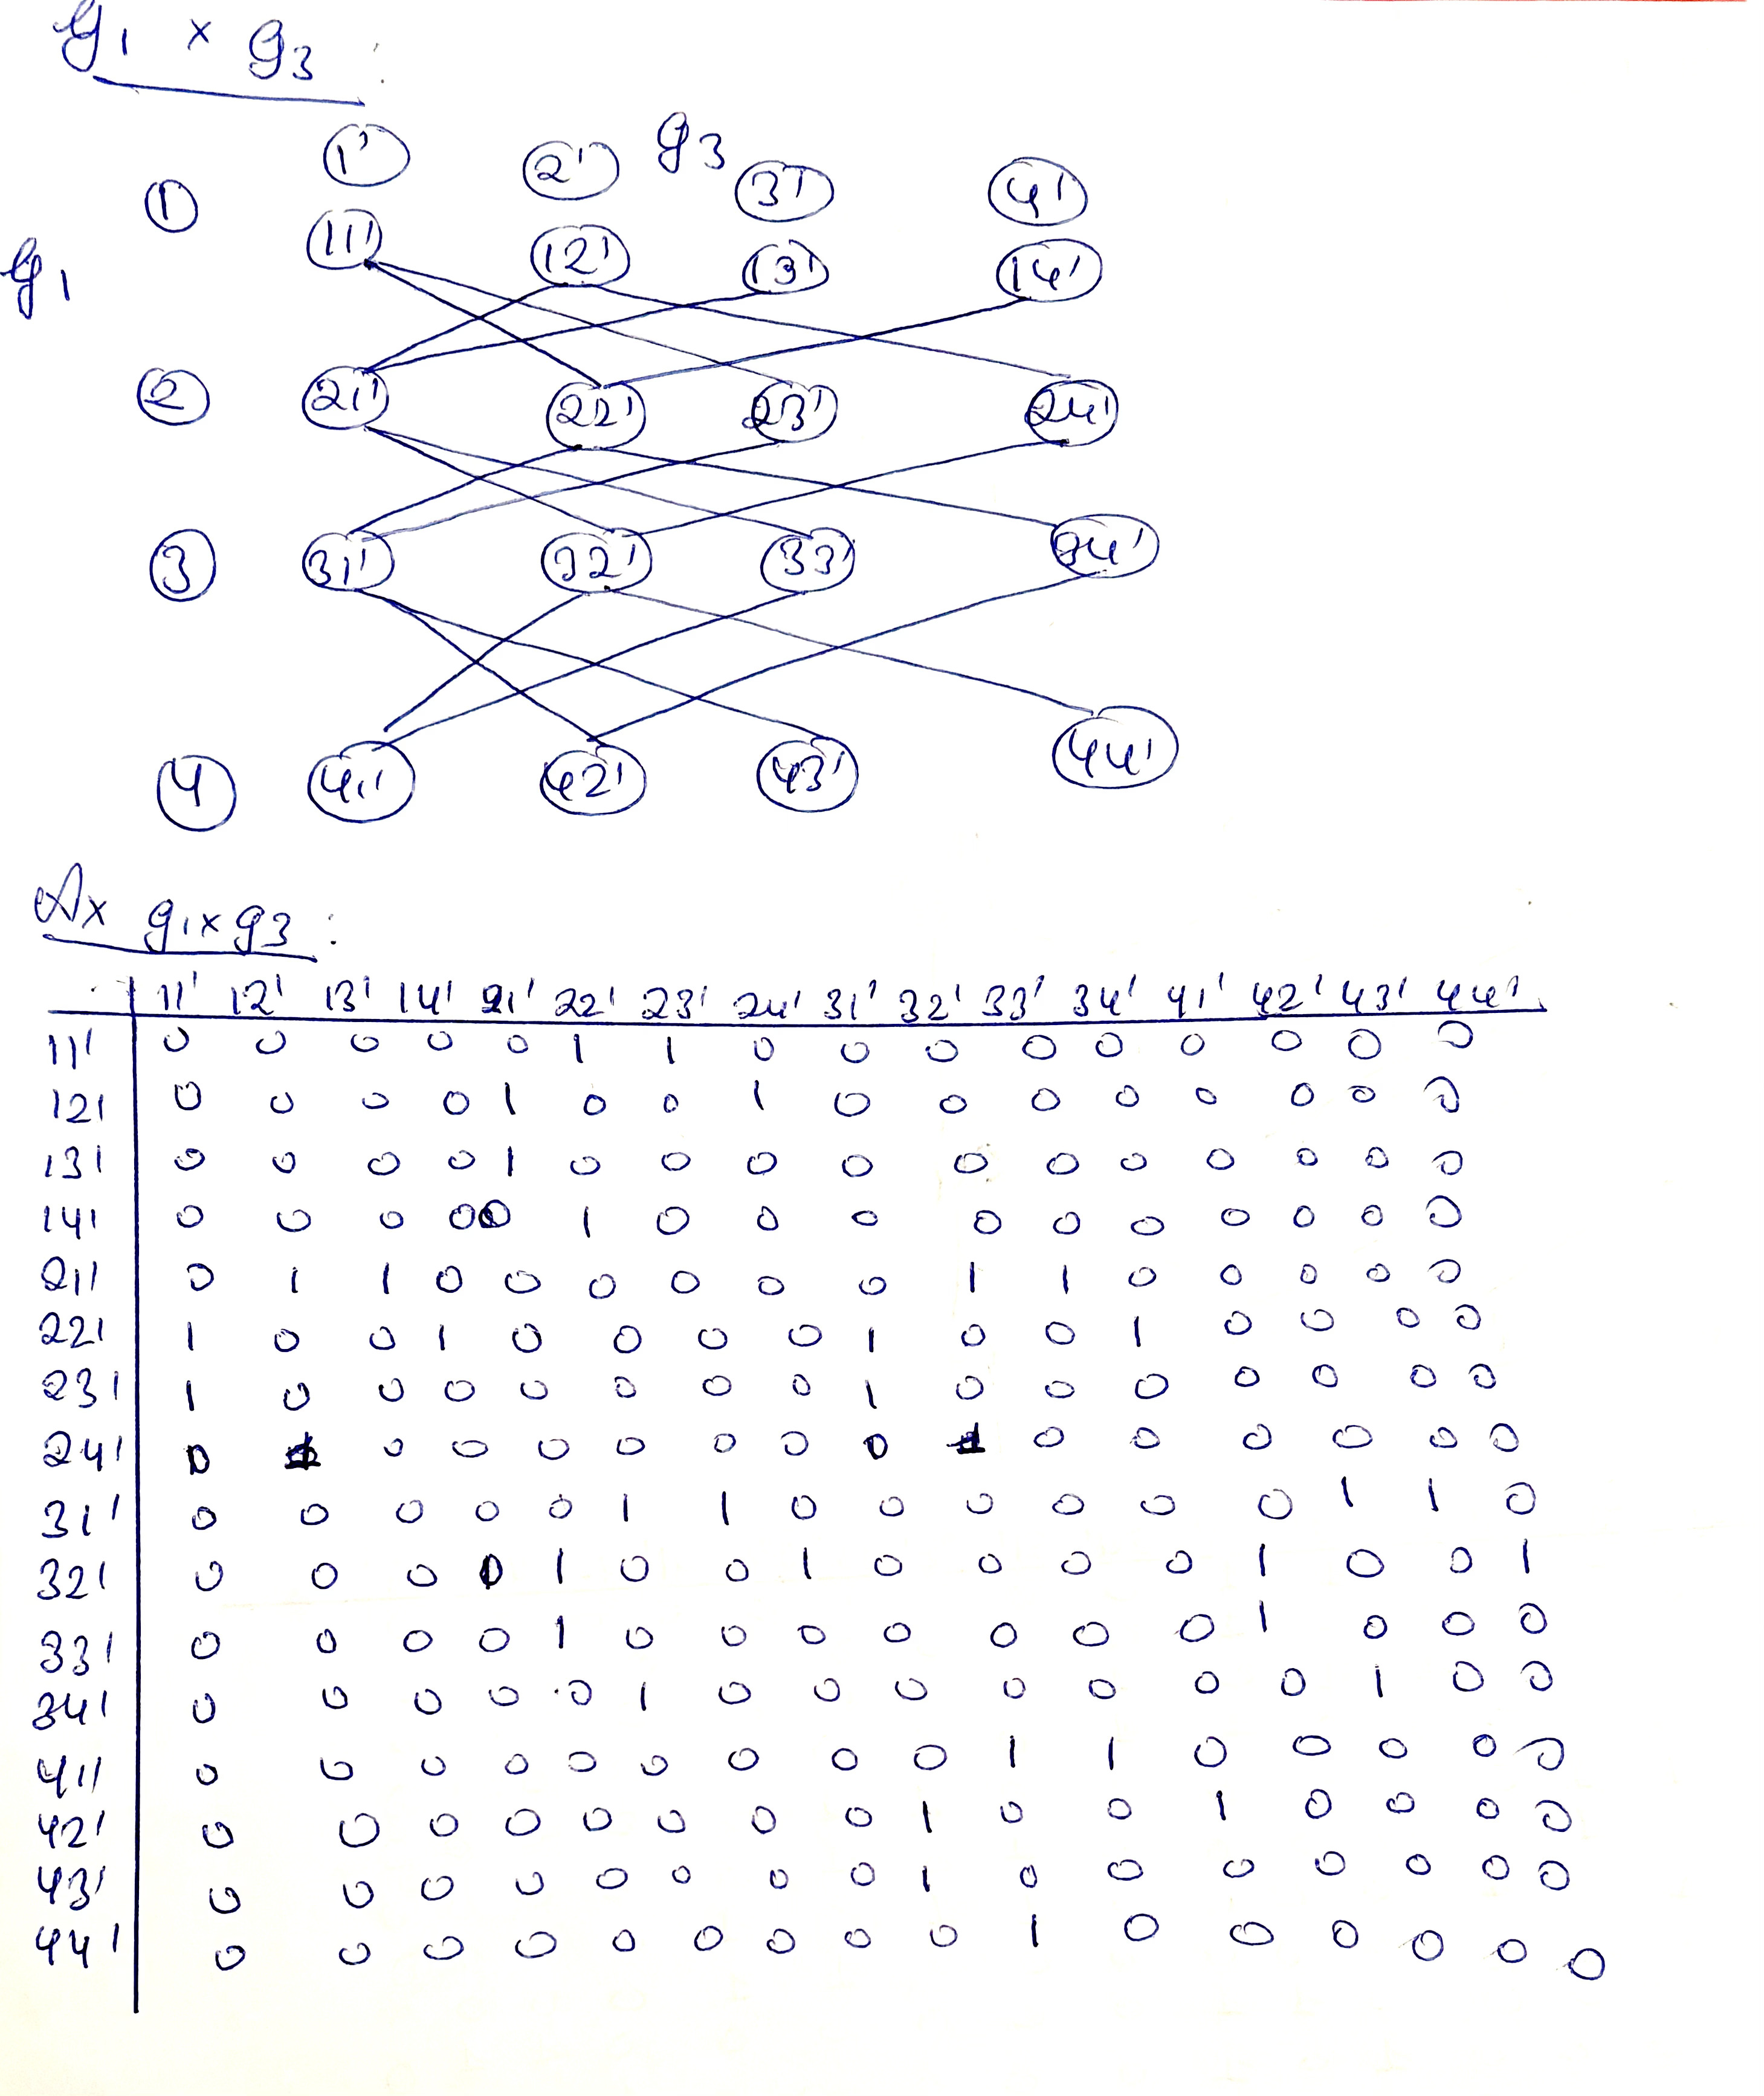 g1 × g3 :
1' 2' g3 3' 4'
1
11' 12' 13' 14'
g1
2 21' 22' 23' 24'
3 31' 32' 33' 34'
4 41' 42' 43' 44'
Ax g1×g3 :
11' 12' 13' 14' 21' 22' 23' 24' 31' 32' 33' 34' 41' 42' 43' 44'
11' 0 0 0 0 0 1 1 0 0 0 0 0 0 0 0 0
12' 0 0 0 0 1 0 0 1 0 0 0 0 0 0 0 0
13' 0 0 0 0 1 0 0 0 0 0 0 0 0 0 0 0
14' 0 0 0 0 0 1 0 0 0 0 0 0 0 0 0 0
21' 0 1 1 0 0 0 0 0 0 1 1 0 0 0 0 0
22' 1 0 0 1 0 0 0 0 1 0 0 1 0 0 0 0
23' 1 0 0 0 0 0 0 0 1 0 0 0 0 0 0 0
24' 0 1 0 0 0 0 0 0 0 1 0 0 0 0 0 0
31' 0 0 0 0 0 1 1 0 0 0 0 0 0 1 1 0
32' 0 0 0 0 1 0 0 1 0 0 0 0 1 0 0 1
33' 0 0 0 0 1 0 0 0 0 0 0 0 1 0 0 0
34' 0 0 0 0 0 1 0 0 0 0 0 0 0 1 0 0
41' 0 0 0 0 0 0 0 0 0 1 1 0 0 0 0 0
42' 0 0 0 0 0 0 0 0 1 0 0 1 0 0 0 0
43' 0 0 0 0 0 0 0 0 1 0 0 0 0 0 0 0
44' 0 0 0 0 0 0 0 0 0 1 0 0 0 0 0 0